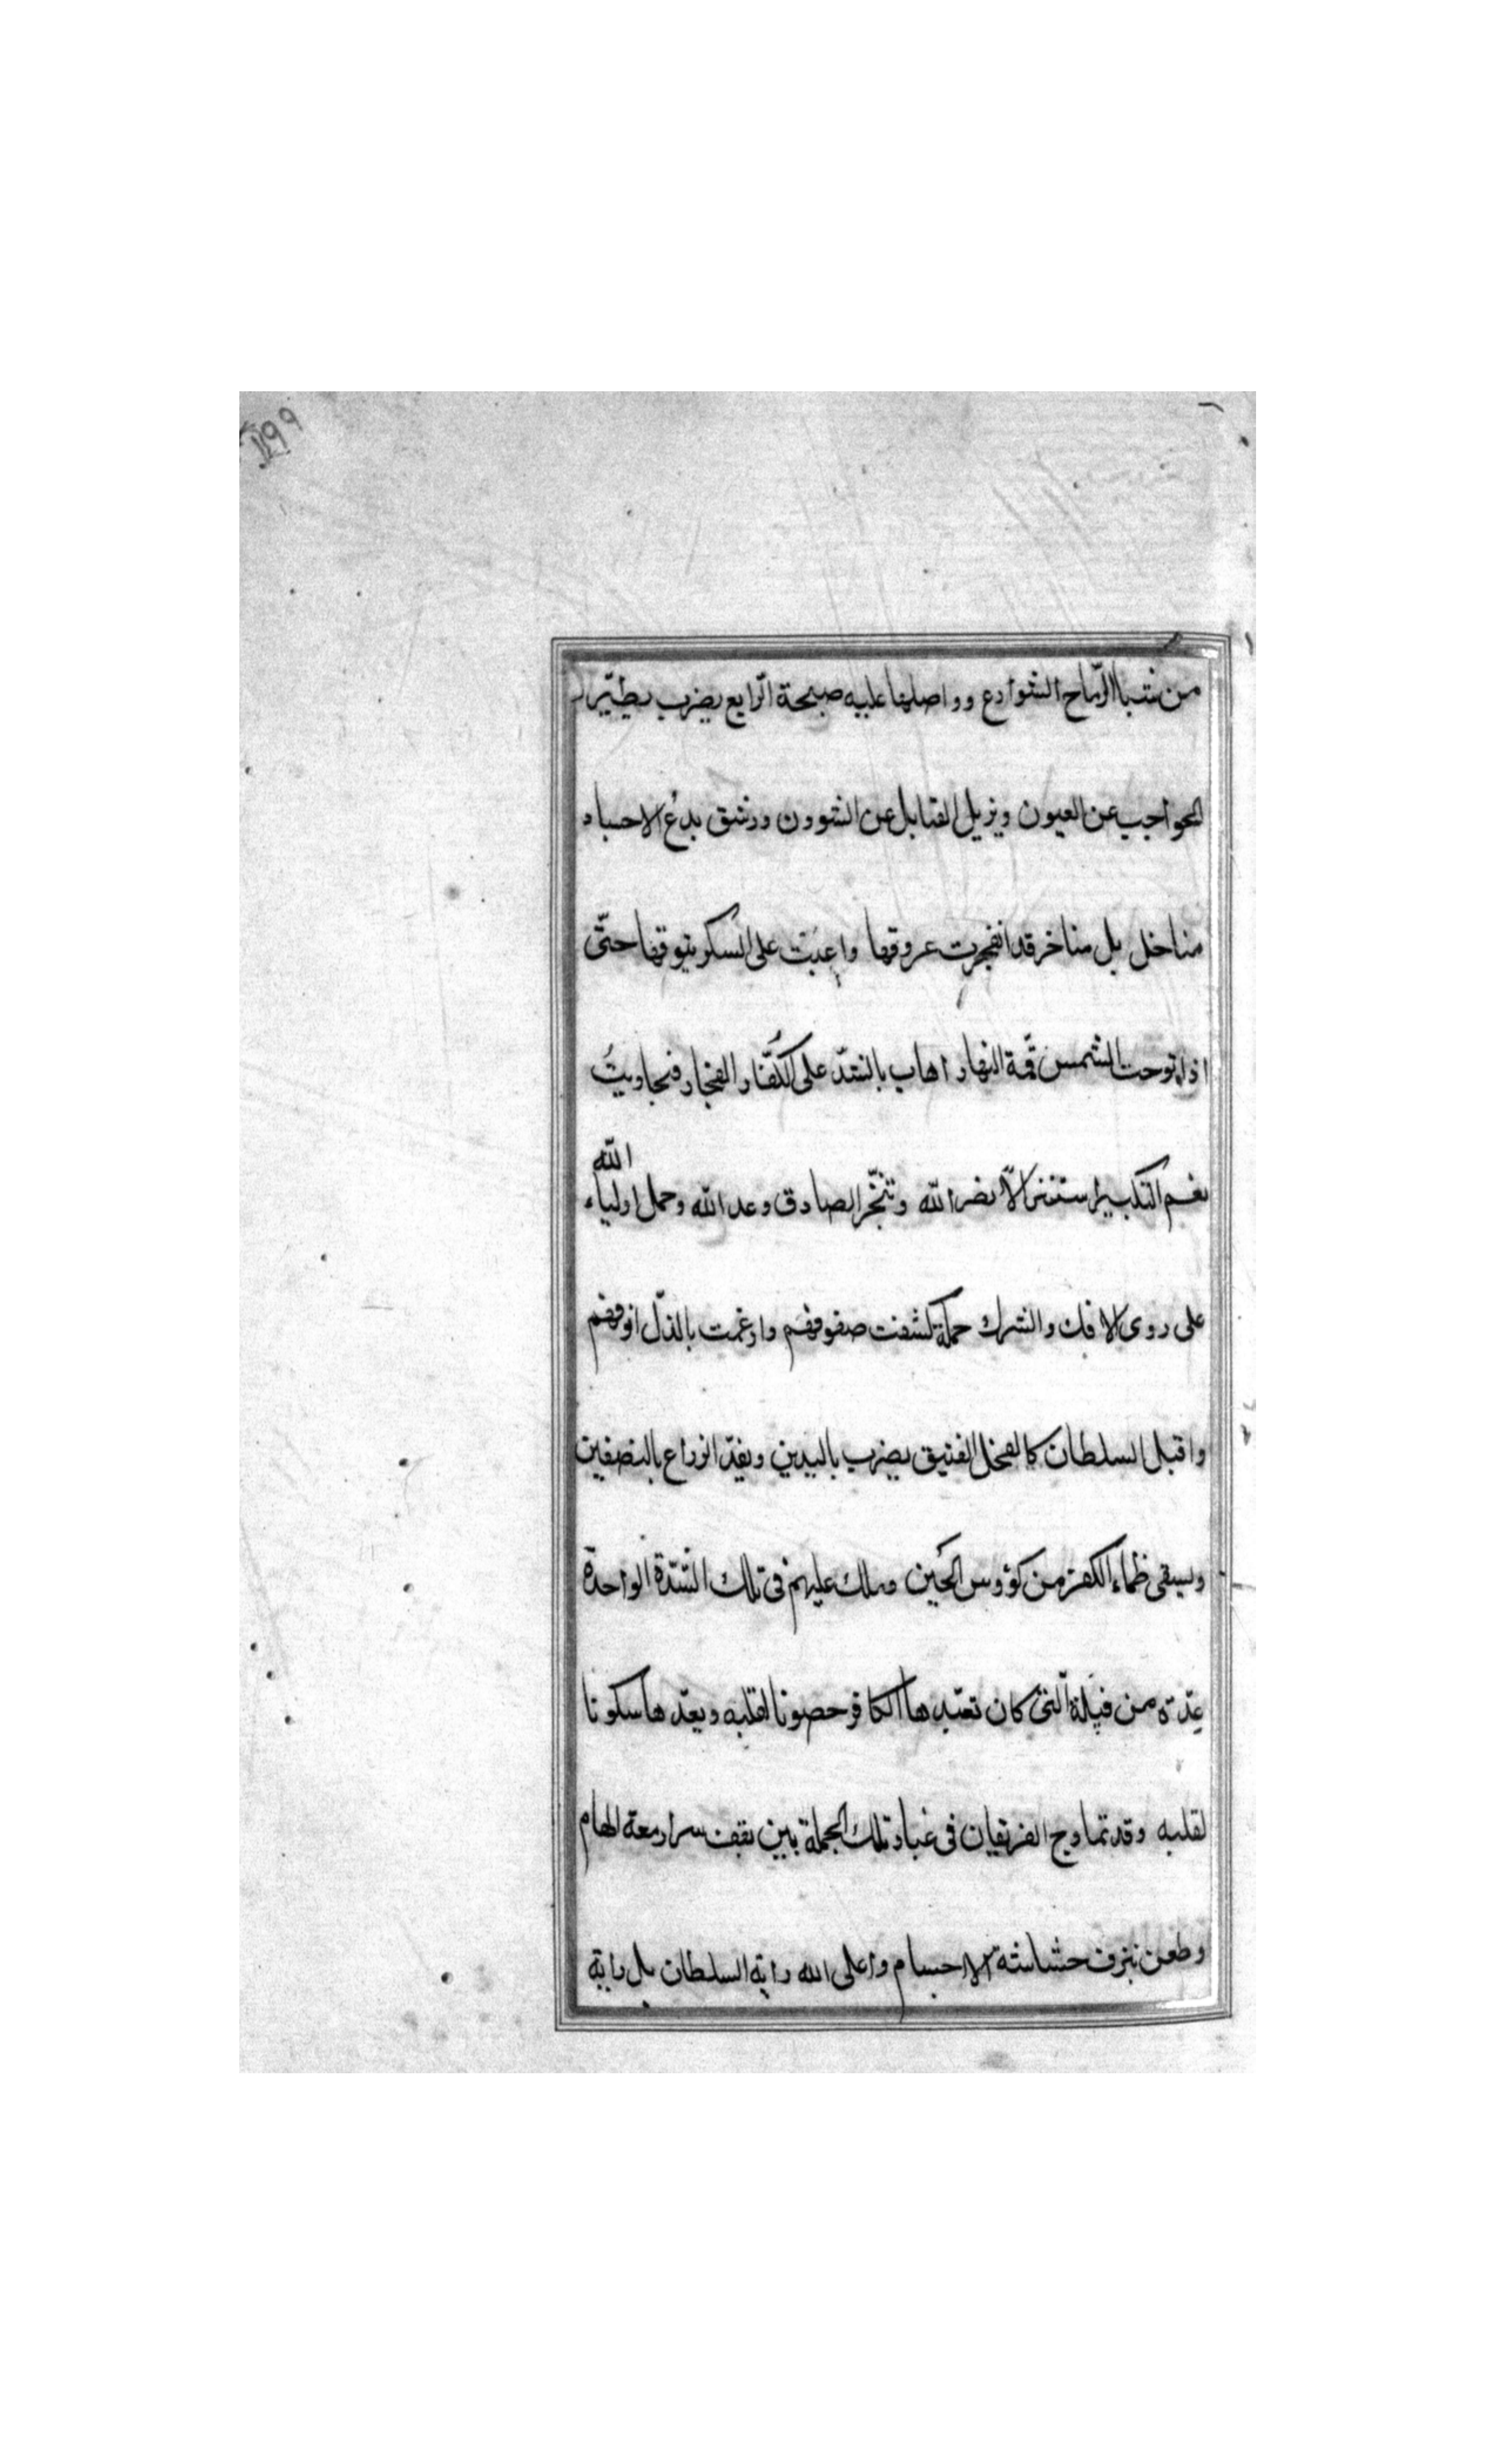 ١٩٩
من شبا الرّماح الشوارع وواصلها عليه صبيحة الرّابع بضرب يطيّر
الحواجب عن العيون ويزيل القبايل عن الشوون ورشق يدع الاجساد
مناخل بل مناخر قد انفجرت عروقها واعيت على السكر بثوقها حتّى
اذا توحت الشمس قمّة النهار اهاب بالشدّ على الكفّار الفجار فتجاوبت
نغم التكبير استنزالاً نصر الله وتنجّز الصادق وعد الله وحمل اولياء الله
على روى الافك والشرك حملة كشفت صفوفهم وارغمت بالذلّ انوفهم
واقبل السلطان كالفحل الفنيق يضرب باليدين ويقدّ الدراع بالنصفين
ويسقى ظماء الكفرة من كؤوس الحَين وملك عليهم فى تلك الشدّة الواحدة
عِدّة من فيلة الّتى كان تعتدها الكافر حصونا لقلبه ويعدّها سكونا
لقلبه وقد تماوج الفريقان فى غبار تلك الحملة بين نقف سرا ومعة الهام
وطعن بنزف حشاشة الاجسام واعلى الله راية السلطان بل راية